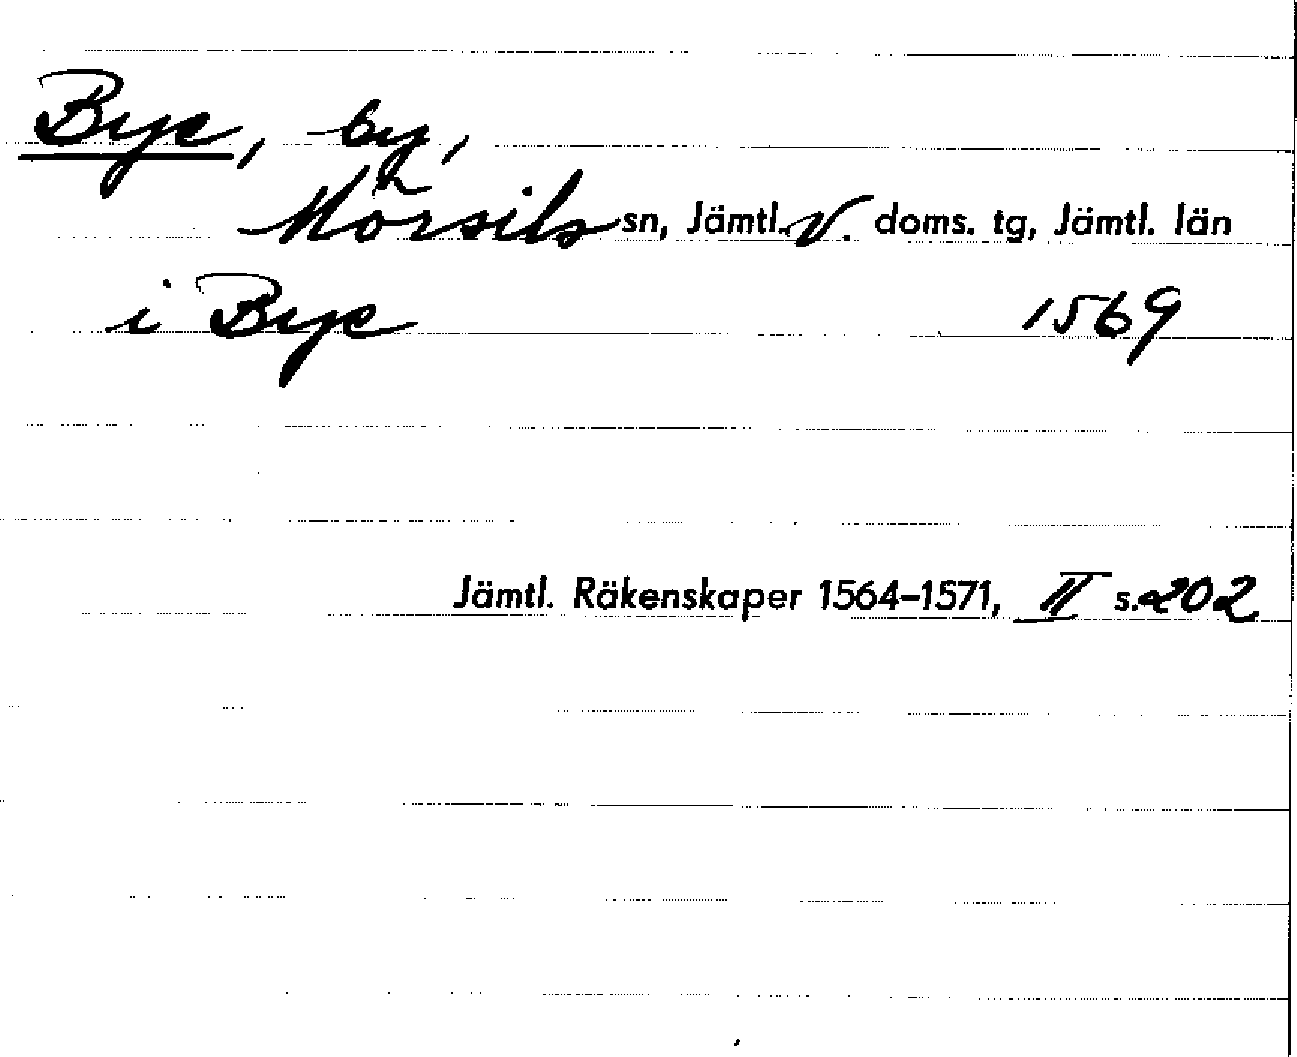 Bye, by,
Mörsils sn, Jämtl. V. doms. tg, Jämtl. län
i Bye 1569
Jämtl. Räkenskaper 1564–1571, II s. 202